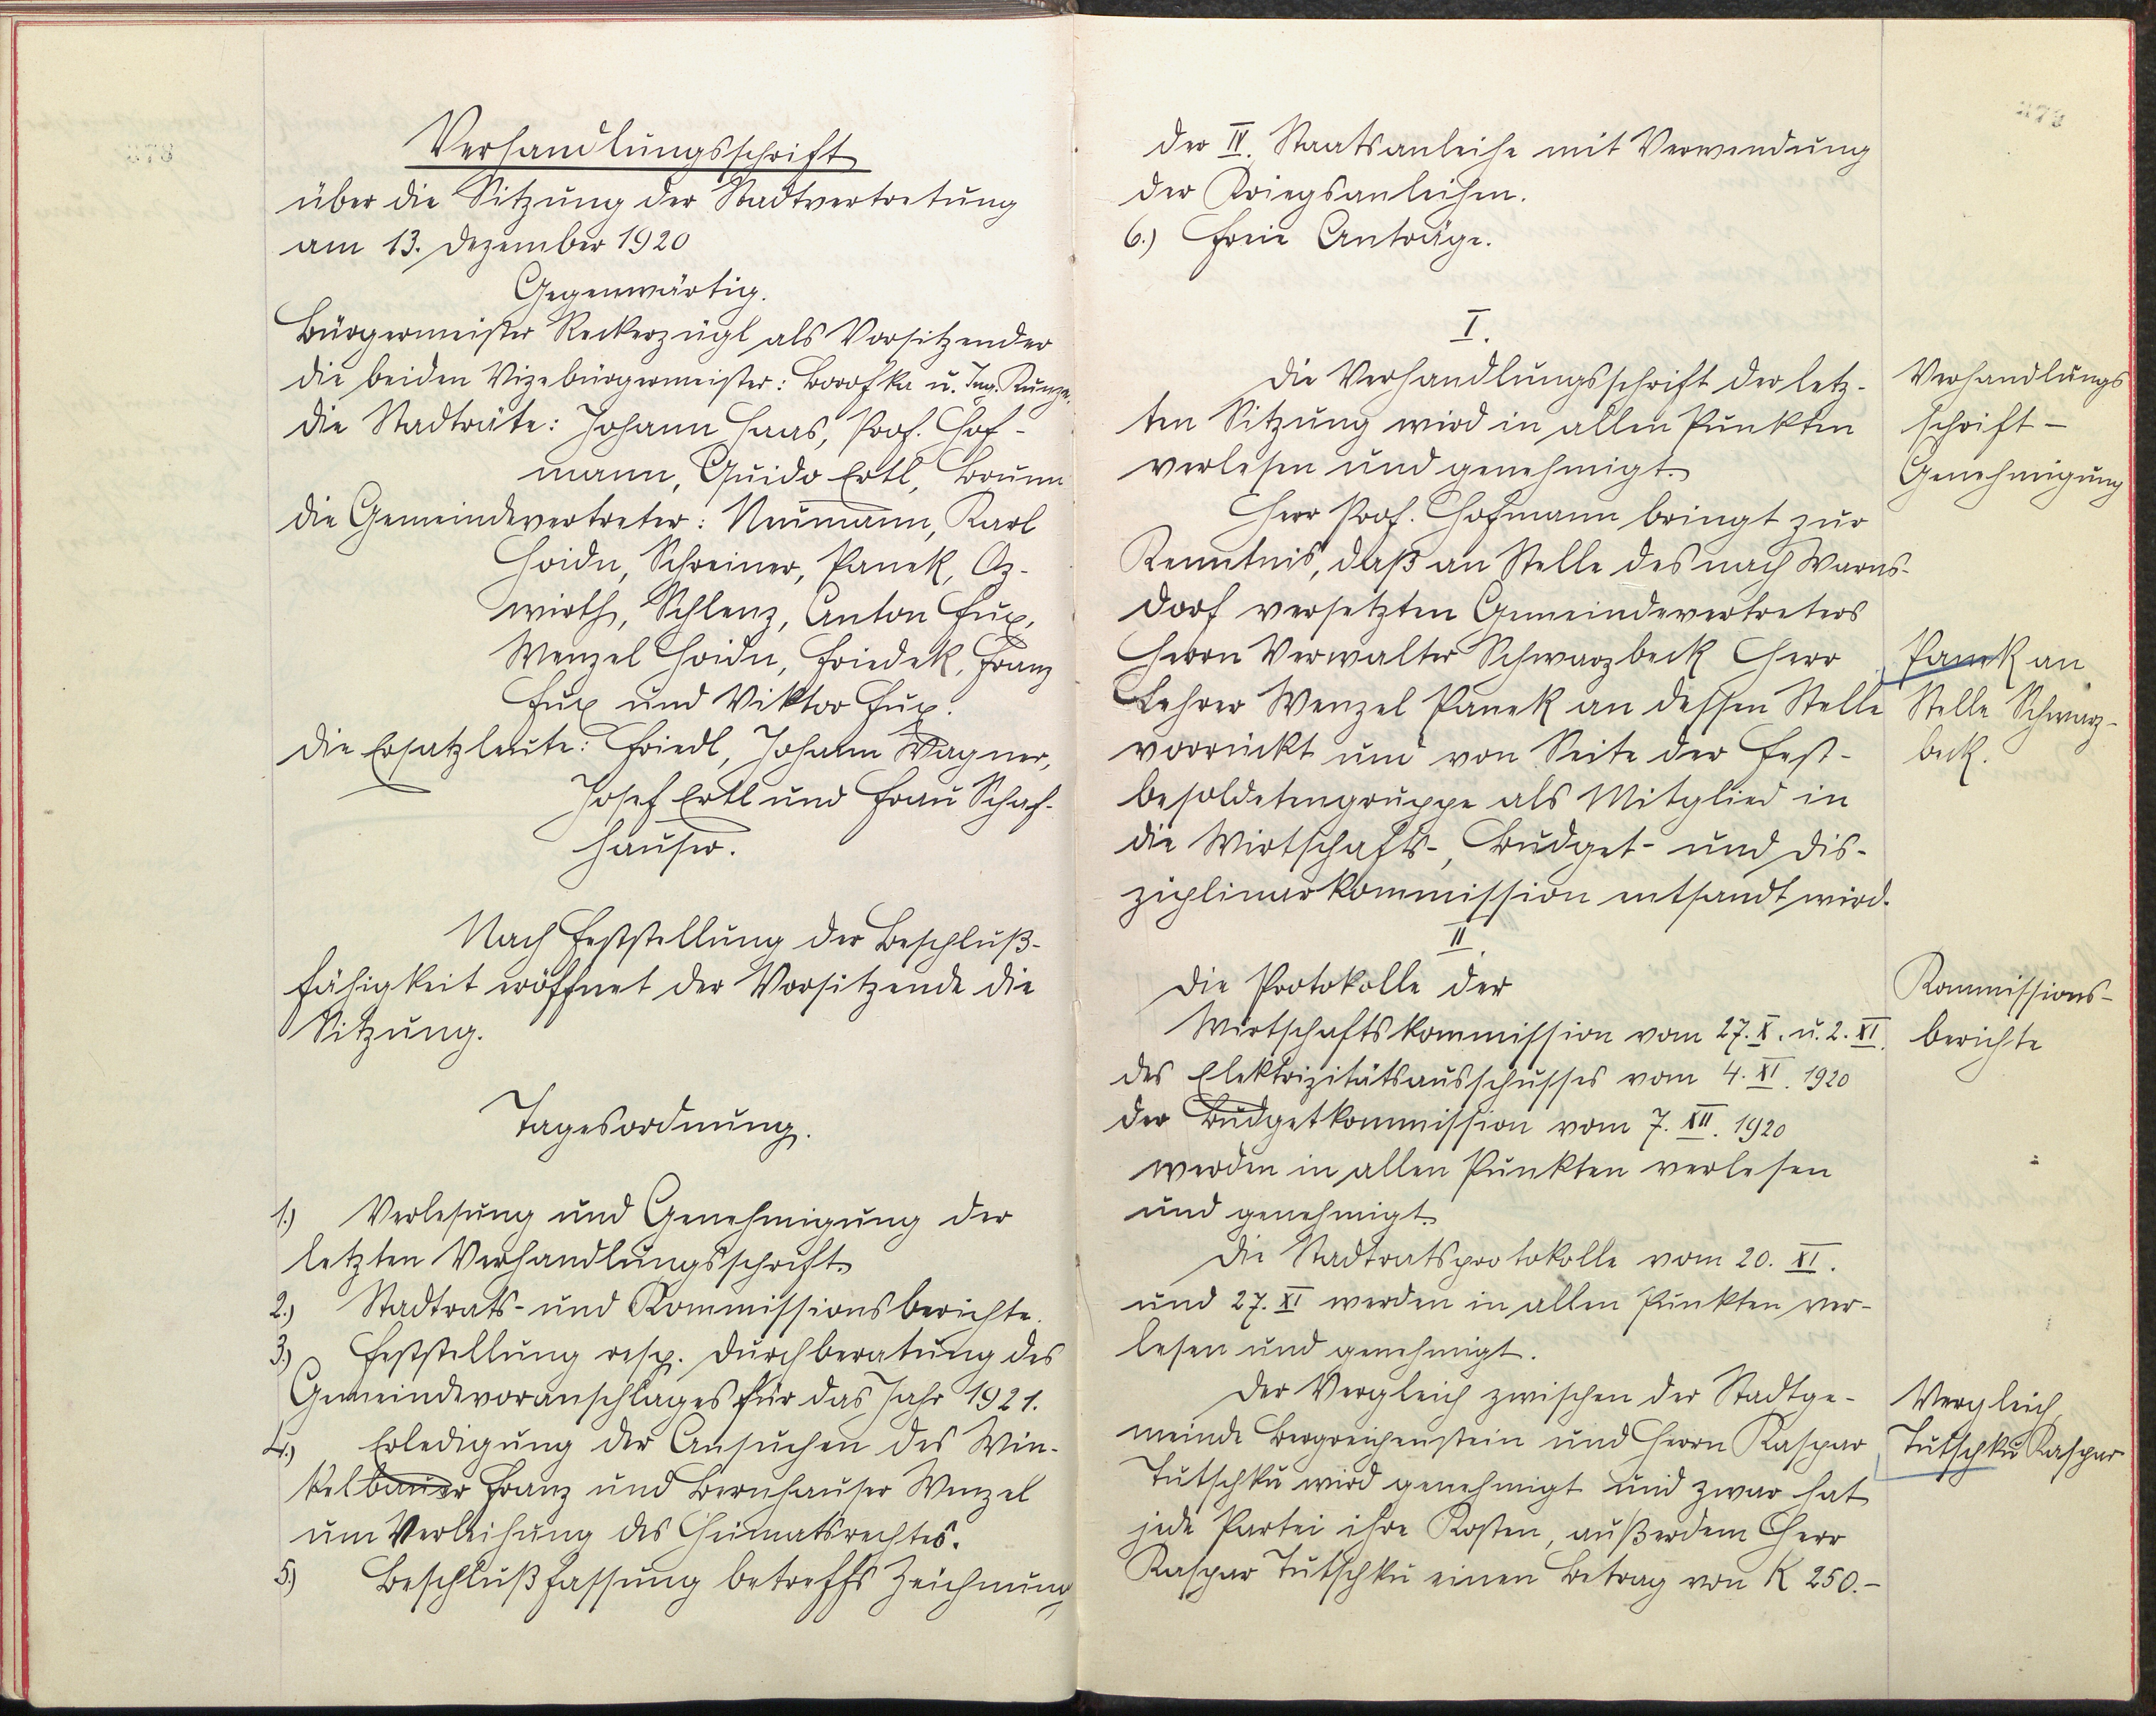 Verhandlungsschrift
über die Sitzung der Stadtvertretung
am 13. Dezember 1920
Gegenwärtig.
Bürgermeister Reckerzügl als Vorsitzender
die beiden Vizebürgermeister: Borofka u. Ing. Kunze.
die Stadträte: Johann Haas, Prof. Hof-
mann, Guido Ertl, Brunn
die Gemeindevertreter: Neumann, Karl
Hoidn, Schreiner, Panek, Oz-
wirth, Schlenz, Anton Fux,
Wenzel Hoidn, Friedek, Franz
Fux und Viktor Fux.
die Ersatzleute: Friedl, Johann Wagner,
Josef Ertl und Frau Schaf-
hauser.
Nach Feststellung der Beschluß-
fähigkeit eröffnet der Vorsitzende die
Sitzung.
Tagesordnung.
1.) Verlesung und Genehmigung der
letzten Verhandlungsschrift.
2.) Stadtrats- und Kommissionsberichte.
3.) Feststellung resp. Durchberatung des
Gemeindevoranschlages für das Jahr 1921.
4.) Erledigung der Ansuchen des Win-
kelbauer Franz und Bernhauser Wenzel
um Verleihung des Heimatsrechtes.
5.) Beschlußfassung betreffs Zeichnung
der IV. Staatsanleihe mit Verwendung
der Kriegsanleihen.
6.) Freie Anträge.
I.
Die Verhandlungsschrift der letz-
ten Sitzung wird in allen Punkten
verlesen und genehmigt.
Verhandlungs
schrift-
Genehmigung
Herr Prof. Hofmann bringt zur
Kenntnis, daß an Stelle des nach Warns-
dorf versetzten Gemeindevertreters
Herrn Verwalter Schwarzbeck Herr
Lehrer Wenzel Panek an dessen Stelle
vorrückt und von Seite der Fest-
besoldetengruppe als Mitglied in
die Wirtschafts-, Budget- und Dis-
ziplinarkommission entsandt wird.
Panek an
Stelle Schwarz-
beck.
II.
Die Protokolle der
Wirtschaftskommission vom 27. X. u. 2. XI.
des Elektrizitätsausschusses vom 4. XI. 1920
der Budgetkommission vom 7. XII. 1920
werden in allen Punkten verlesen
und genehmigt.
Kommissions-
berichte
Die Stadtratsprotokolle vom 20. XI.
und 27. XI werden in allen Punkten ver-
lesen und genehmigt.
Der Vergleich zwischen der Stadtge-
meinde Bergreichenstein und Herrn Kaspar
Tutschku wird genehmigt und zwar hat
jede Partei ihre Kosten, außerdem Herr
Kaspar Tutschku einen Betrag von K 250.-
Vergleich
Tutschku Kaspar